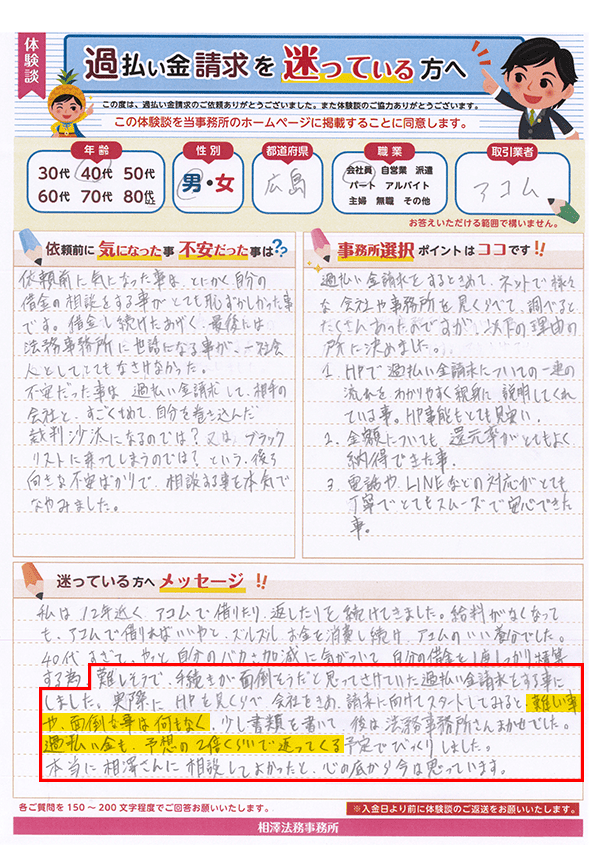 体験談
過払い金請求を迷っている方へ
この度は、過払い金請求のご依頼ありがとうございました。また体験談のご協力ありがとうございます。
この体験談を当事務所のホームページに掲載することに同意します。
年齢
30代 40代 50代
60代 70代 80代以上
性別
男・女
都道府県
広島
職業
会社員 自営業 派遣
パート アルバイト
主婦 無職 その他
取引業者
アコム
お答えいただける範囲で構いません。
依頼前に気になった事 不安だった事は??
依頼前に気になった事は、とにかく自分の
借金の相談をする事がとても恥ずかしかった事
です。借金し続けたあげく、最後には
法務事務所にお世話になる事が、一社会
人としてとてもなさけなかった。
不安だった事は 過払い金請求して、相手の
会社と、すごくもめて、自分を巻き込んだ
裁判沙汰になるのでは?又は、ブラック
リストに乗ってしまうのでは?という、後ろ
向きな不安ばかりで、相談する事を本気で
なやみました。
事務所選択 ポイントはココです!!
過払い金請求をするときめて、ネットで様々
な会社や事務所を見くらべて、調べると
たくさんあったのですが、以下の理由の
所に決めました。
1. HPで過払い金請求についての一連の
流れをわかりやすく親身に説明してくれ
ている事。HP事態もとても見安い。
2. 金額についても、還元率がとてもよく
納得できた事。
3. 電話や、LINEなどの対応がとても
丁寧でとてもスムーズで安心できた
事。
迷っている方へ メッセージ!!
私は、12年近く、アコムで借りたり、返したりを続けてきました。給料がなくなって
も、アコムで借りればいいやと、ズルズルお金を消費し続け、アコムのいい養分でした。
40代すぎて、やっと自分のバカさ加減に気がついて、自分の借金を1度しっかり精算
する為、難しそうで、手続きが面倒そうだと思ってさけていた過払い金請求をする事に
しました。実際に HPを見くらべ、会社をきめ、請求に向けてスタートしてみると、難しい事
や、面倒な事は何もなく、少し書類を書いて 後は法務事務所さんまかせでした。
過払い金も、予想の2倍くらいで返ってくる予定でびっくりしました。
本当に相澤さんに相談してよかったと、心の底から今は思っています。
各ご質問を150～200文字程度でご回答お願いいたします。
※入金日より前に体験談のご返送をお願いいたします。
相澤法務事務所